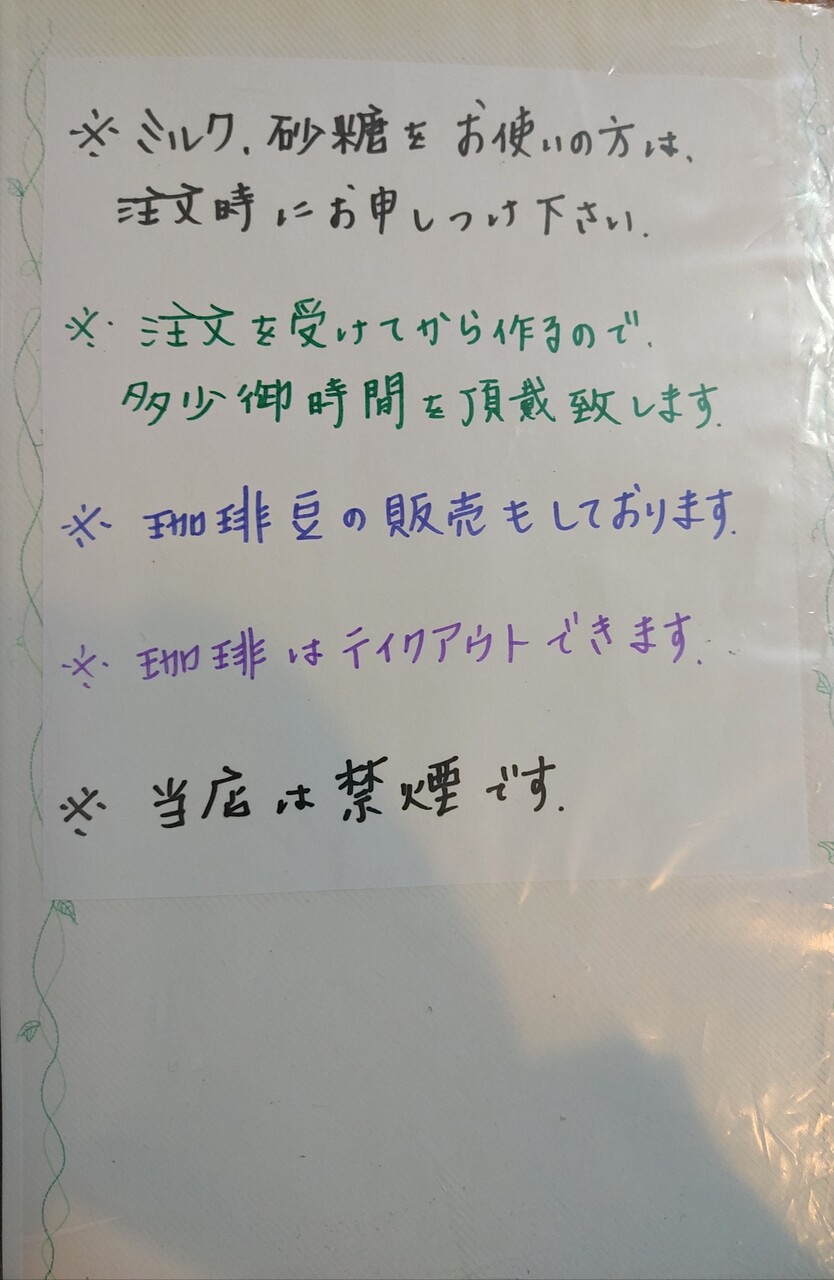 ※ ミルク、砂糖を お使いの方は、
注文時にお申しつけ下さい.
※ 注文を受けてから作るので、
多少御時間を頂戴致します.
※ 珈琲豆の販売もしております.
※ 珈琲はテイクアウトできます.
※ 当店は禁煙です.